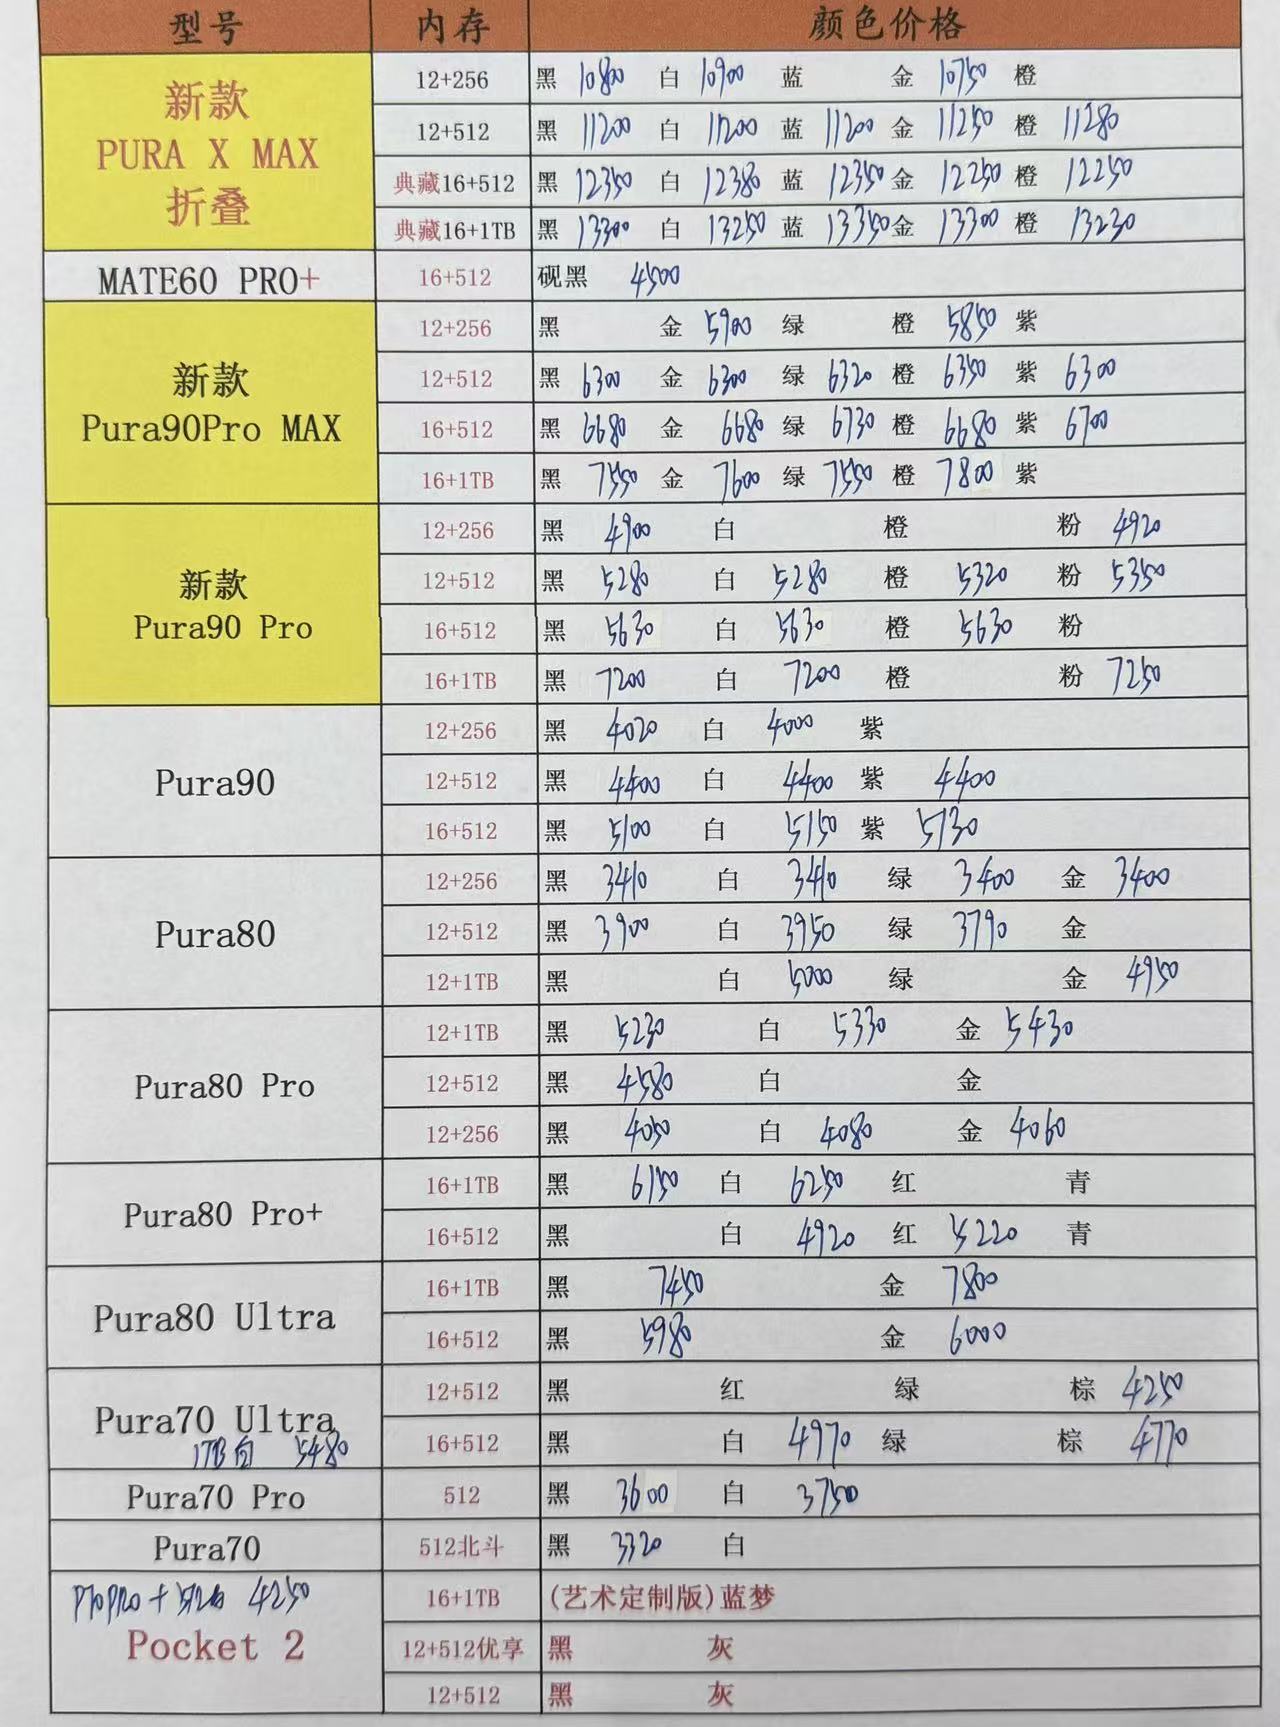 型号 内存 颜色价格
新款 PURA X MAX 折叠
12+256 黑 10800 白 10900 蓝 金 10750 橙
12+512 黑 11200 白 11200 蓝 11200 金 11250 橙 11280
典藏16+512 黑 12350 白 12380 蓝 12350 金 12250 橙 12250
典藏16+1TB 黑 13300 白 13250 蓝 13350 金 13300 橙 13230
MATE60 PRO+ 16+512 砚黑 4500
新款 Pura90Pro MAX
12+256 黑 金 5900 绿 橙 5850 紫
12+512 黑 6300 金 6300 绿 6320 橙 6350 紫 6300
16+512 黑 6680 金 6680 绿 6730 橙 6680 紫 6700
16+1TB 黑 7550 金 7600 绿 7550 橙 7800 紫
新款 Pura90 Pro
12+256 黑 4900 白 橙 粉 4920
12+512 黑 5280 白 5280 橙 5320 粉 5350
16+512 黑 5630 白 5630 橙 5630 粉
16+1TB 黑 7200 白 7200 橙 粉 7250
Pura90
12+256 黑 4020 白 4000 紫
12+512 黑 4400 白 4400 紫 4400
16+512 黑 5100 白 5150 紫 5130
Pura80
12+256 黑 3410 白 3410 绿 3400 金 3400
12+512 黑 3900 白 3950 绿 3790 金
12+1TB 黑 白 5000 绿 金 4950
Pura80 Pro
12+1TB 黑 5230 白 5330 金 5430
12+512 黑 4580 白 金
12+256 黑 4050 白 4080 金 4060
Pura80 Pro+
16+1TB 黑 6150 白 6250 红 青
16+512 黑 白 4920 红 5220 青
Pura80 Ultra
16+1TB 黑 7450 金 7800
16+512 黑 5980 金 6000
Pura70 Ultra
1TB白 5480
12+512 黑 红 绿 棕 4250
16+512 黑 白 4970 绿 棕 4770
Pura70 Pro 512 黑 3600 白 3750
Pura70 512北斗 黑 3320 白
P70PRO+512白 4250
Pocket 2
16+1TB (艺术定制版)蓝梦
12+512优享 黑 灰
12+512 黑 灰